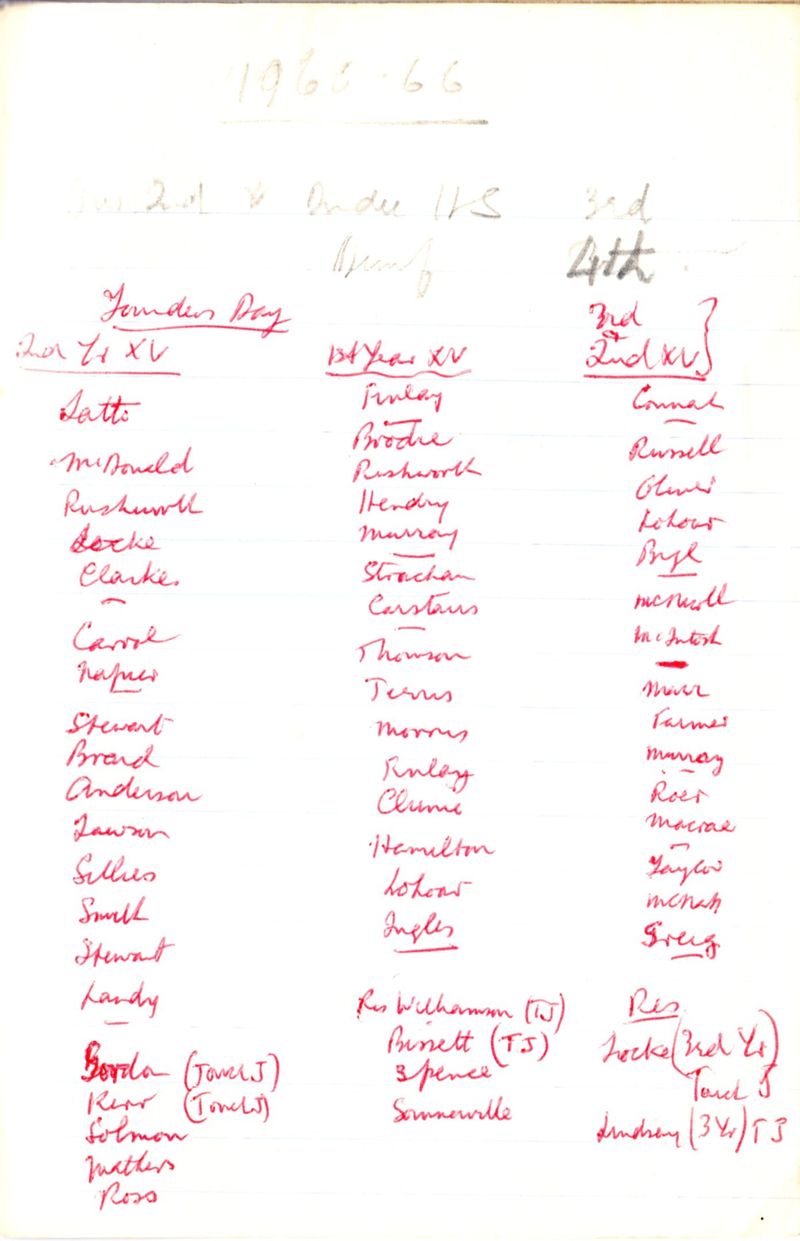 1965-66
2nd v Dundee HS 3rd
4th
Founders Day
2nd Yr XV
Latto
McDonald
Rushworth
Locke
Clarke
Carrol
Napier
Stewart
Brand
Anderson
Lawson
Gillies
Smith
Stewart
Landy
Gordon (Touch J)
Kerr (Touch J)
Solmon
Mathers
Ross
1st Year XV
Finlay
Brodie
Rushworth
Hendry
Murray
Strachan
Carstairs
Thomson
Ferris
Morris
Finlay
Clunie
Hamilton
Lohoar
Ingles
Res Williamson (TJ)
Bissett (TJ)
Spence
Sommerville
3rd
2nd XV
Connah
Russell
Oliver
Lohoar
McNeill
McIntosh
Marr
Farmer
Murray
Macrae
Taylor
McNab
Greig
Res
Locke (3rd Yr)
Touch J
Lindsay (3 Yr) TJ